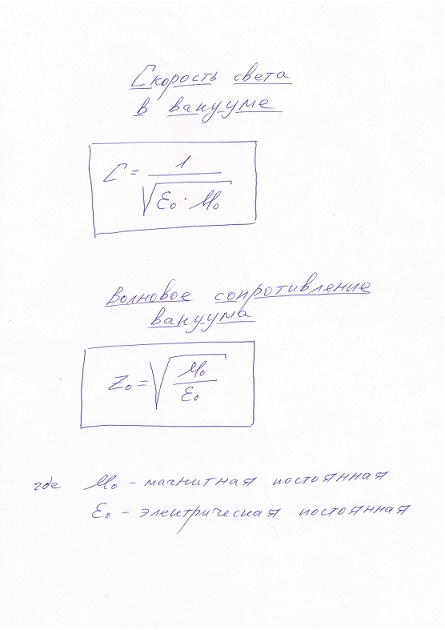 Скорость света
в вакууме
C = 1 / √(ε₀ · μ₀)
Волновое сопротивление
вакуума
Z₀ = √(μ₀ / ε₀)
где μ₀ - магнитная постоянная
ε₀ - электрическая постоянная